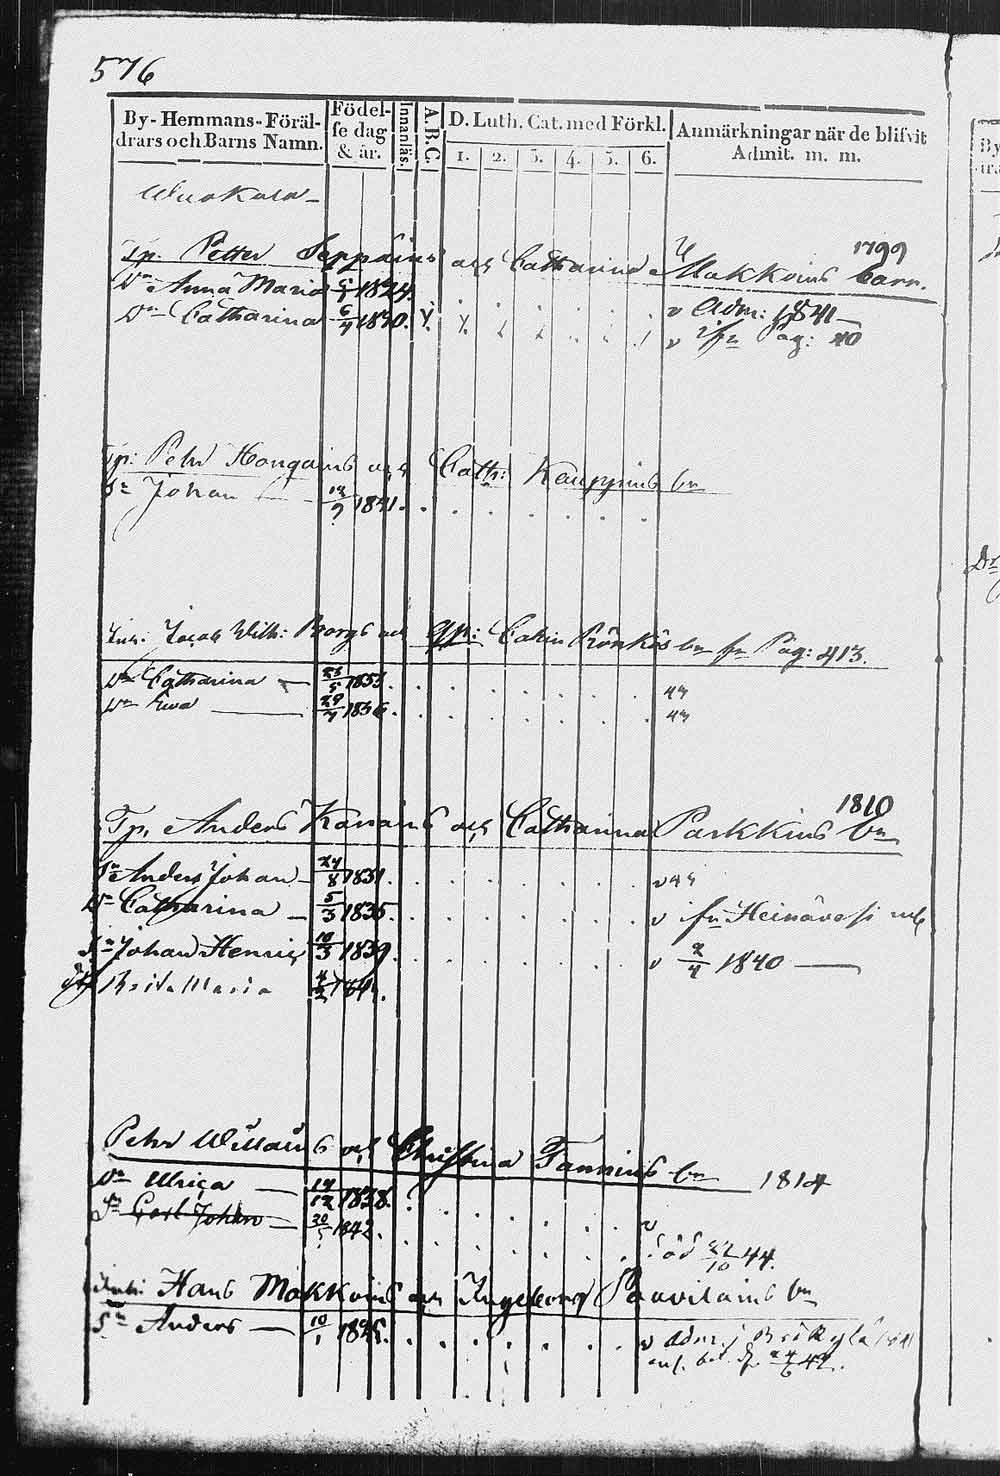 576
By- Hemmans- Föräl-
drars och Barns Namn.
Födel-
se dag
& år.
Innanläs.
A.B.C.
D. Luth. Cat. med Förkl.
1. 2. 3. 4. 5. 6.
Anmärkningar när de blifvit
Admit. m. m.
1799
Tp. Petter Seppäins och Catharina Makkoins barn.
Dr Anna Maria 1824. v Adm: 1841
Dr Catharina 6/4 1830. v ifrn Pag: 40
Tp: Petr Hongains och Cath: Kauppins bn
Sn Johan 1841.
Inh: Jacob Wilh: Borgs och Catrin Rönkös bn frn Pag: 413.
Dr Catharina 1833
Dr Ewa 29/7 1836.
1810
Tp. Anders Kanains och Catharina Parkkins bn
Sn Anders Johan 24/8 1831.
Dr Catharina 5/3 1835. v ifrn Heinävesi
Sn Johan Henric 10/3 1839. v 2/4 1840
Dr Brita Maria
Petr Willains och Christina Tannins bn 1814
Dr Ulrica 14/12 1838.
Sn Carl Johan 1842. v död 22/10 44.
Inh: Hans Makkoins och Ingeborg Paavilains bn
Sn Anders 10/1 v adm: i